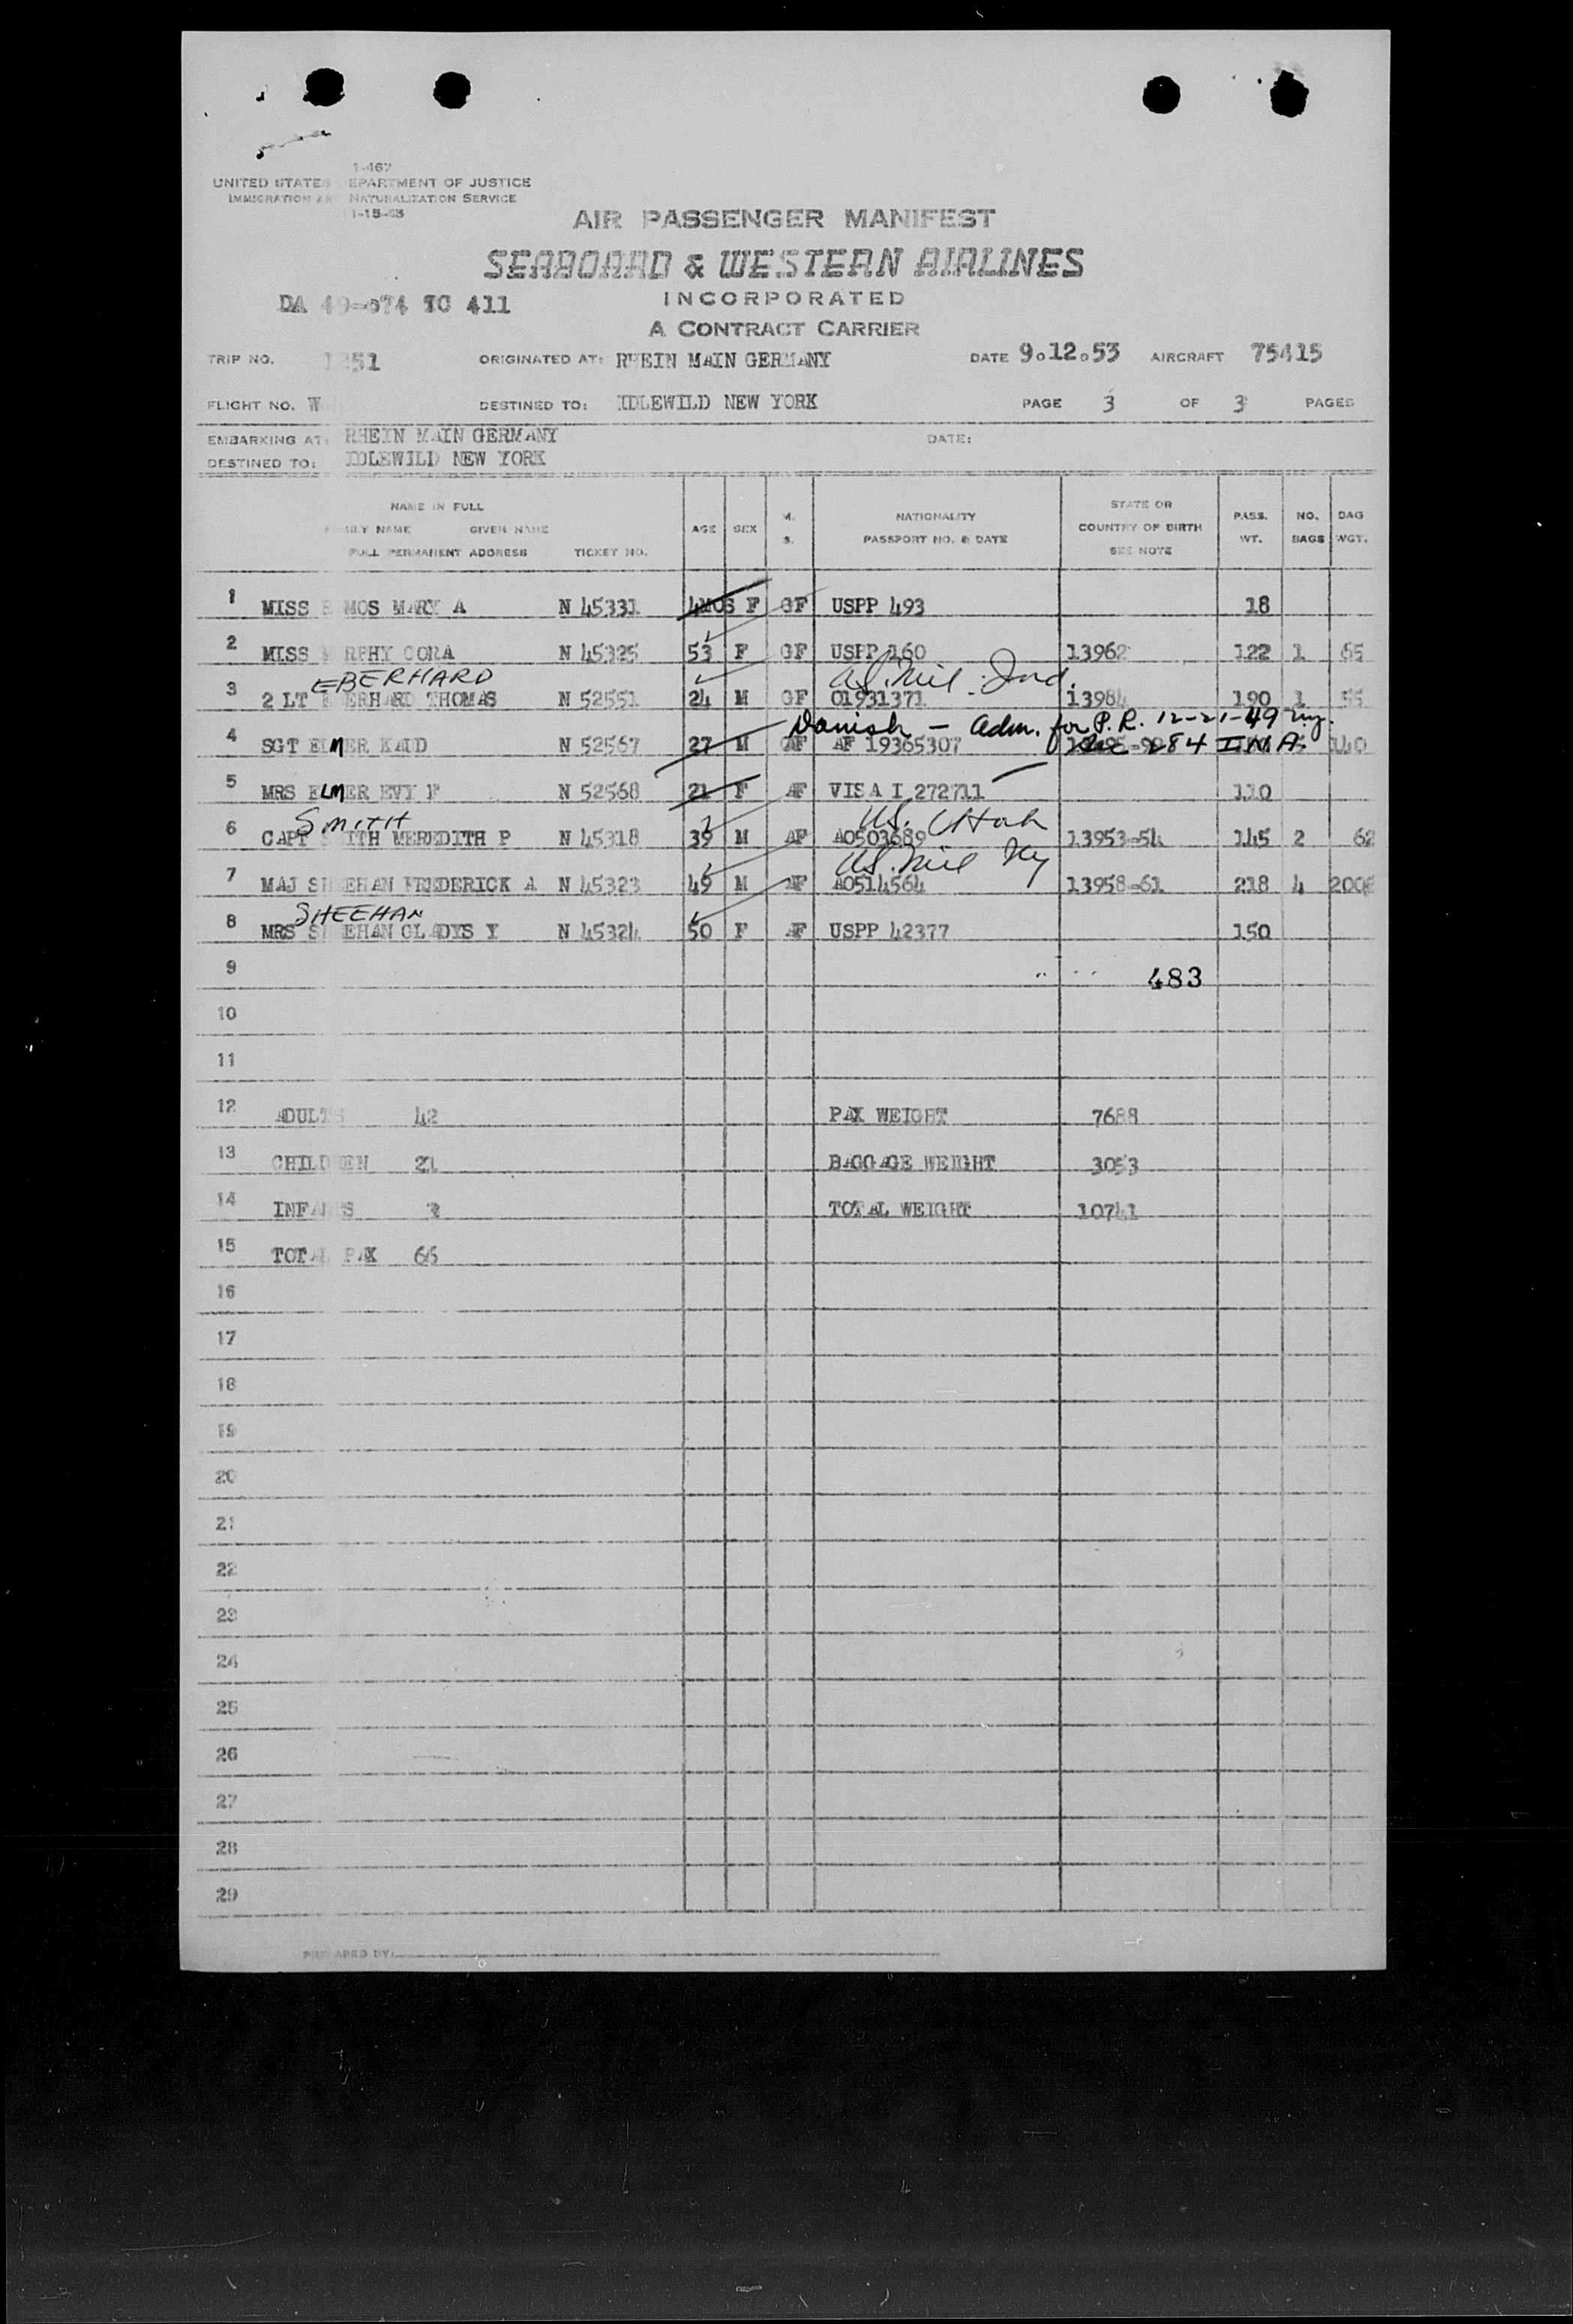 1-467
UNITED STATES DEPARTMENT OF JUSTICE
IMMIGRATION AND NATURALIZATION SERVICE
AIR PASSENGER MANIFEST
SEABOARD & WESTERN AIRLINES
INCORPORATED
DA 49-074 TC 411
A CONTRACT CARRIER
TRIP NO. 1251 ORIGINATED AT: RHEIN MAIN GERMANY DATE 9.12.53 AIRCRAFT 75415
FLIGHT NO. W DESTINED TO: IDLEWILD NEW YORK PAGE 3 OF 3 PAGES
EMBARKING AT: RHEIN MAIN GERMANY DATE:
DESTINED TO: IDLEWILD NEW YORK
NAME IN FULL
FAMILY NAME GIVEN NAME
FULL PERMANENT ADDRESS TICKET NO. AGE SEX M. S. NATIONALITY PASSPORT NO. & DATE STATE OR COUNTRY OF BIRTH SEE NOTE PASS. WT. NO. BAGS BAG WGT.
1 MISS MOS MARY A N 45331 4MOS F GF USPP 493 18
2 MISS MURPHY CORA N 45325 53 F GF USPP 160 13962 122 1 65
EBERHARD US. Mil Ind.
3 2 LT EBERHARD THOMAS N 52551 24 M GF 01931371 13984 190 1 55
Danish - adm. for P.R. 12-21-49 ny.
4 SGT ELMER KAUD N 52567 27 M AF AF 19365307 284 INA 140
5 MRS ELMER EVY F N 52568 21 F AF VISA I 272711 110
SMITH US. Utah
6 CAPT SMITH MEREDITH P N 45318 39 M AF AO503689 13953-54 145 2 62
US. Mil Ky
7 MAJ SHEEHAN FREDERICK A N 45323 49 M AF AO514564 13958-61 218 4 200
SHEEHAN
8 MRS SHEEHAN GLADYS Y N 45324 50 F AF USPP 42377 150
9 483
10
11
12 ADULTS 42 PAX WEIGHT 7688
13 CHILDREN 21 BAGGAGE WEIGHT 3053
14 INFANTS 3 TOTAL WEIGHT 10741
15 TOTAL PAX 66
16
17
18
19
20
21
22
23
24
25
26
27
28
29
PREPARED BY: